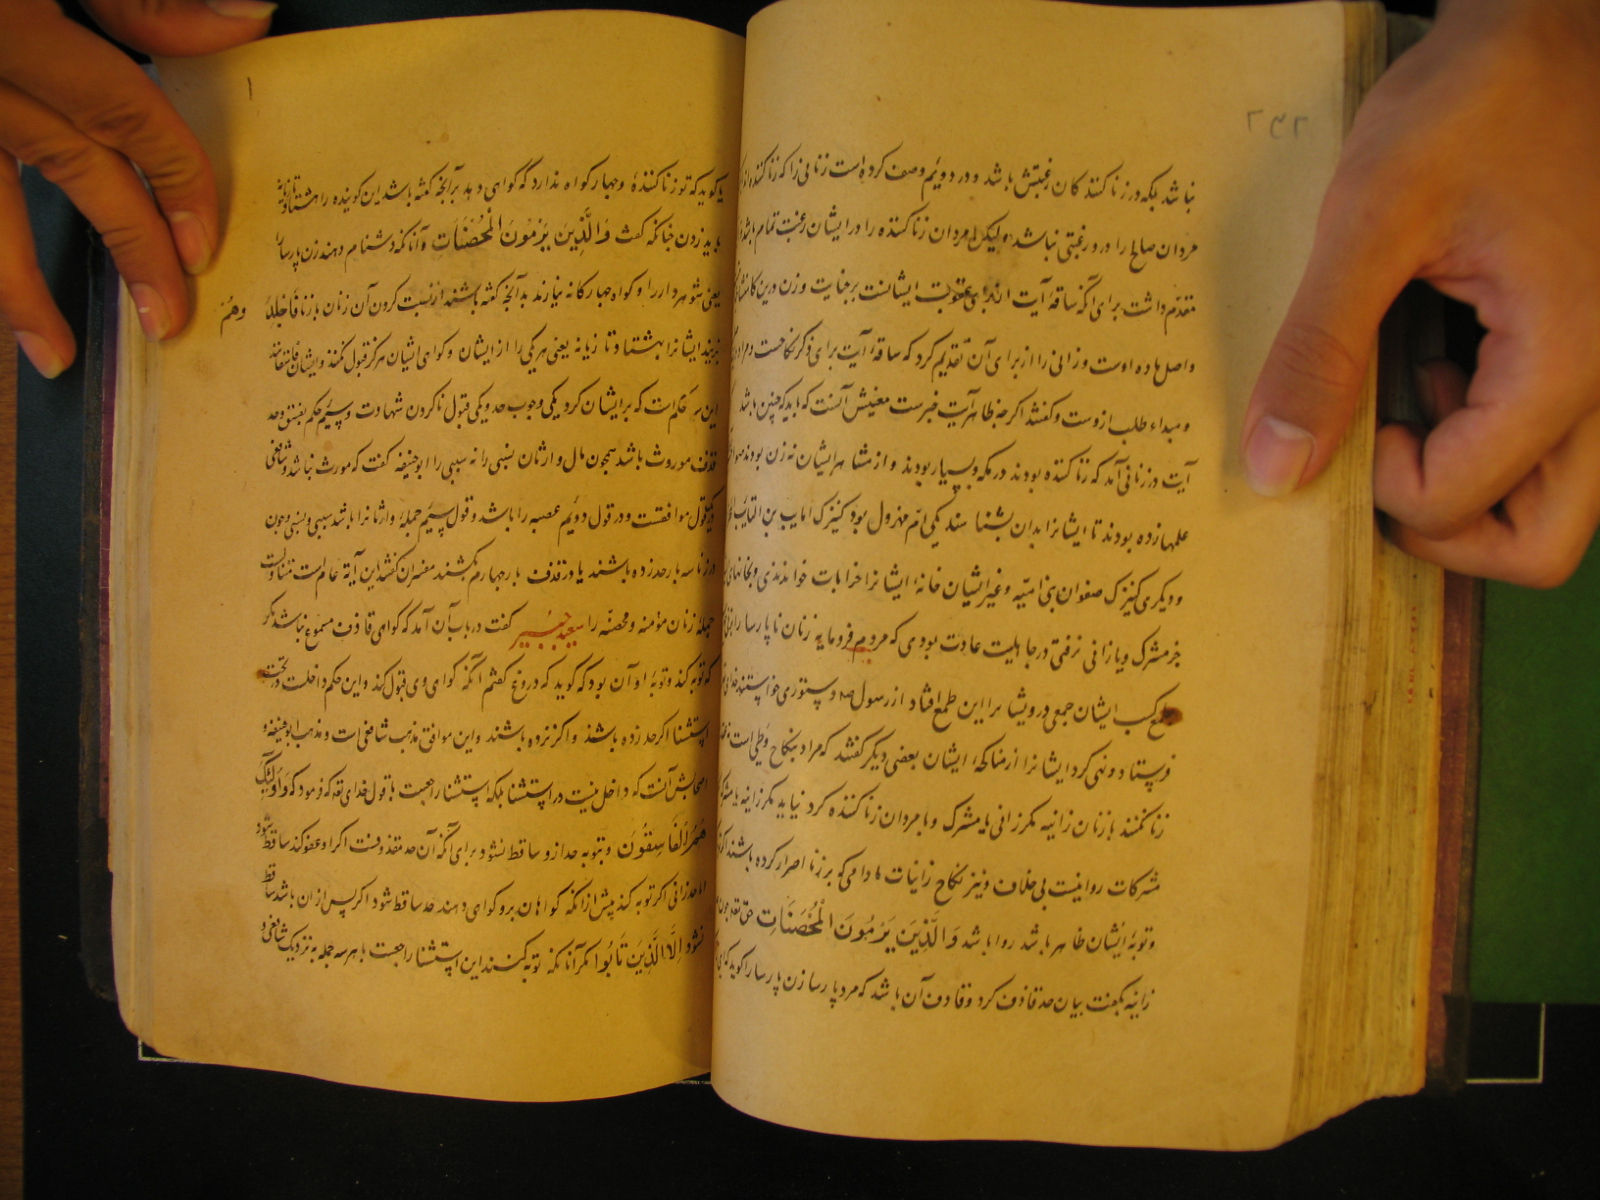 ۲۴۲
نباشد بلکه در زنا کنندکان رغبتش باشد و در دویم وصف کرده است زنانی را که زنا کننده اند
مردان صالح را در و رغبتی نباشد ولیکن مردان زنا کننده را در ایشان رغبت تمام باشد
مقدم داشت برای انکه ساقهٔ آیت از برای عقوبت ایشانست بر جنایت و زن درین کار منشأ
واصل ماده اوست و زانی را از برای آن تقدیم کرد که ساقهٔ آیت برای ذکر نکاحست و مرد
و مبداء طلب ازوست و کفتند اکرچه ظاهر آیت خبرست معنیش آنست که باید که چنین باشد
آیت در زنانی آمد که زنا کننده بودند در مکه و بسیار بودند و از مشاهیر ایشان نه زن بودند
علمها زده بودند تا ایشانرا بدان بشناسند یکی ام مهزول بود کنیزک سایب بن السایب
و دیکری کنیزک صفوان بن امیّه و غیر ایشان خانهٔ ایشانرا خرابات خواندندی و بخانهای
جز مشرک و یا زانی نرفتی در جاهلیت عادت بودی که مردم فرومایه زنان ناپارسا را
طمع کسب ایشان جمعی درویشانرا این طمع افتاد از رسول ص دستوری خواستند خدای
فرستاد و نهی کرد ایشانرا از مناکحهٔ ایشان بعضی دیکر کفتند که مراد بنکاح وطی است
زنا نکنند با زنان زانیه مکر زانی یا مشرک و با مردان زنا کننده کرد نیاید مکر زانیه یا مشرکه
مشرکات روا نیست بی خلاف و نیز نکاح زانیات مادامی که بر زنا اصرار کرده باشند اکر
و توبهٔ ایشان ظاهر باشد روا باشد وَالَّذِينَ يَرْمُونَ الْمُحْصَنَاتِ حق تعالی چون
زانیه بکفت بیان حد قاذف کرد و قاذف آن باشد که مرد پارسا زن پارسا را کوید که
۱
یا کوید که تو زنا کنندهٔ و چهار کواه ندارد که کواهی دهد بر آنچه کفته باشد این کوینده را هشتاد تازیانه
باید زدن چنانکه کفت وَالَّذِينَ يَرْمُونَ الْمُحْصَنَاتِ و آنانکه دشنام دهند زن پارسا را
یعنی شوهردار را و کواه چهارکانه نیارند بدآنچه کفته باشند از نسبت کردن آن زنان با زنا فَاجْلِدُو
وهُمْ
بزنید ایشانرا بهشتاد تازیانه یعنی هر یکی را از ایشان و کواهی ایشان هرکز قبول نکنند و ایشان فاسقانند
این سه حکم است که بر ایشان کرد یکی وجوب حد و یکی قبول ناکردن شهادت و سیم حکم بفسق و حد
قذف موروث باشد همچون مال وارثان نسبی را نه سببی را ابو حنیفه کفت که مورث نباشد و شافعی
در یک قول موافقست و در قول دویم عصبه را باشد و قول سیم جملهٔ وارثانرا باشد سببی و نسبی و چون
در زنا سه بار حد زده باشند یا در قذف بار چهارم بکشند مفسران کفتند این آیة عام است متناولست
جملهٔ زنان مؤمنه و محصنه را سعید جبیر کفت در باب آن آمد که کواهی قاذف مسموع نباشد مکر
که توبه کند و توبهٔ او آن بود که کوید که دروغ کفتم آنکه کواهی وی قبول کند و این حکم داخلست در تحت
استثنا اکر حد زده باشند و اکر نزده باشند و این موافق مذهب شافعی است و مذهب ابو حنیفه و
اصحابش آنست که داخل نیست در استثنا بلکه استثنا راجعست با قول خدای تعه که فرمود که وَأُولَئِكَ
هُمُ الْفَاسِقُونَ و بتوبه حد ازو ساقط نشود برای آنکه آن حد مقذوفست اکر او عفو کند ساقط شود
اما حد زانی اکر توبه کند پیش از آنکه کواهان برو کواهی دهند حد ساقط شود اکر پس از ان باشد ساقط
نشود إِلَّا الَّذِينَ تَابُوا مکر آنانکه توبه کنند این استثنا راجعست با هر سه جمله به نزدیک شافعی و